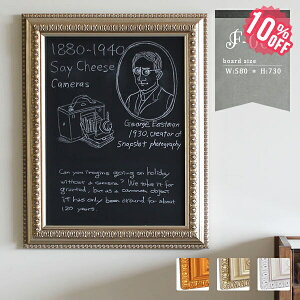 10%
OFF
board size
W:580 * H:730
1880-1940
Say Cheese
Cameras
George Eastman
1930, creator of
snapshot photography
Can you imagine going on holiday
without a camera? We take it for
granted, but as a common object
it has only been around for about
120 years.